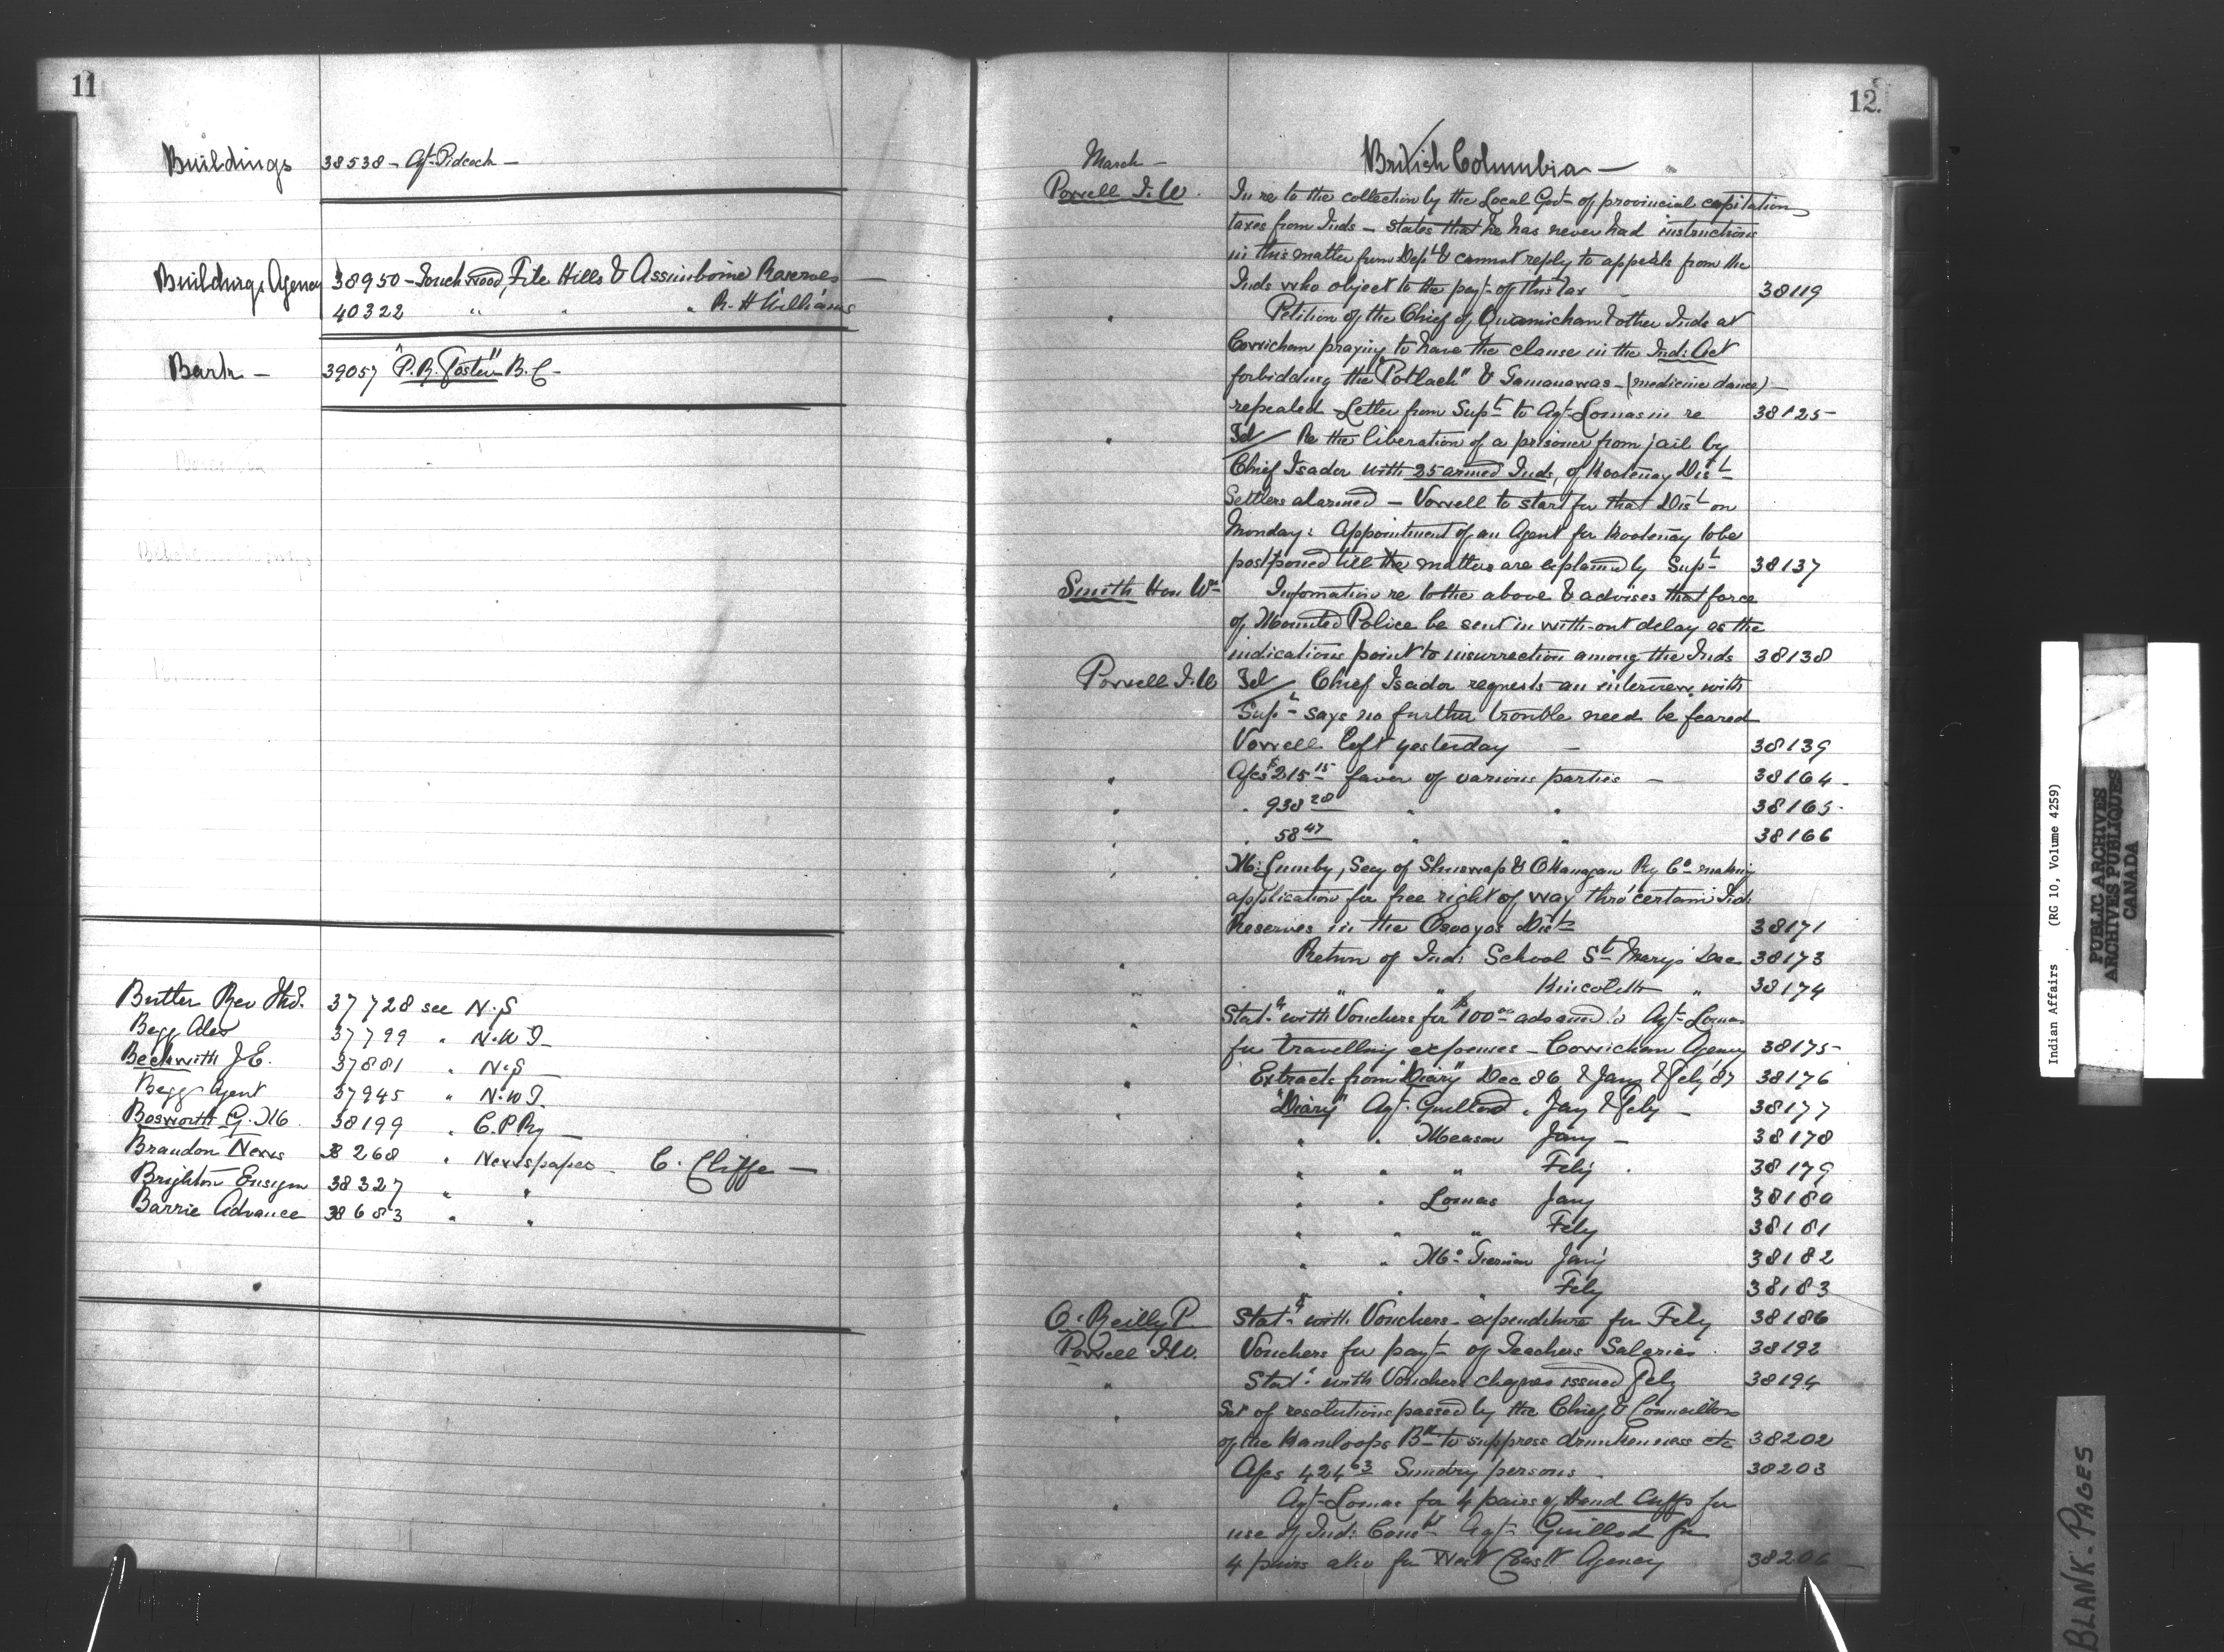 11
Buildings 38538 - Agt Pidcock -
Buildings Agency 38950 - Touchwood, File Hills & Assiniboine Reserves
40322 " " " R. H Williams
Bark - 39057 "P. R. Foster" B.C -
Butler Rev Thos. 37728 see N.S
Begg Alex 37799 " N.W.T
Beckwith J. E. 37881 " N.S
Begg Agent 37945 " N.W.T.
Bosworth G. M 38199 " C.P.Ry
Brandon News 38268 " Newspapers - C. Cliffe -
Brighton Ensign 38327 " "
Barrie Advance 38683 " "
12.
March - British Columbia -
Powell I. W. In re to the collection by the Local Govt of provincial capitation
taxes from Inds - states that he has never had instructions
in this matter from Dept & cannot reply to appeals from the
Inds who object to the payt of this tax - 38119
" Petition of the Chief of Quamichan & other Inds at
Cowichan praying to have the clause in the Ind: Act
forbidding the "Potlach" & Tamanawas - (medicine dance) -
repealed - Letter from Supt to Agt Lomas in re 38125
" Tel/ Re the liberation of a prisoner from jail by
Chief Isador with 25 armed Inds, of Kootenay Dist
Settlers alarmed - Vowell to start for that Dist on
Monday: Appointment of an Agent for Kootenay to be
postponed till the matters are explained by Supt 38137
Smith Hon Wm Infomation re to the above & advises that force
of Mounted Police be sent in with-out delay as the
indications point to insurrection among the Inds 38138
Powell I. W Tel/ Chief Isador requests an interview with
Supt - says no further trouble need be feared
Vowell left yesterday - 38139
" A/cs $215 15 favor of various parties - 38164
" " 938 20 " " 38165
" " 58 47 " " 38166
" Mr: Lumby, Secy of Shuswap & Okanagan Ry Co making
application for free right of way thro' certain Ind:
Reserves in the Osoyoos Dist 38171
" Return of Ind: School St Mary's Dec 38173
" " " Kincolith " 38174
" Stat. with Vouchers for $100 00 advanced to Agt Lomas
for travelling expenses - Cowichan Agency 38175
" Extracts from "Diary" Dec 86 & Jany & Feby 87 38176
" "Diary" Agt. Guillod, Jany & Feby - 38177
" " Meason Jany - 38178
" " " Feby 38179
" " Lomas Jany 38180
" " " Feby 38181
" " Mc Tiernan Jany 38182
" " Feby 38183
O'Reilly P. Stat. with Vouchers - expenditure for Feby 38186
Powell I. W. Vouchers for payt of Teachers Salaries 38192
" Stat. with Vouchers cheques issued Feby 38194
" Set of resolutions passed by the Chief & Councillors
of the Kamloops Bd to suppress drunkenness etc 38202
A/cs 424 63 Sundry persons 38203
" Agt Lomas for 4 pairs of Hand Cuffs for
use of Ind: Const. Agt Guillod for
4 pairs also for West Coast Agency 38206
Indian Affairs (RG 10, Volume 4259)
PUBLIC ARCHIVES
ARCHIVES PUBLIQUES
CANADA
BLANK-PAGES